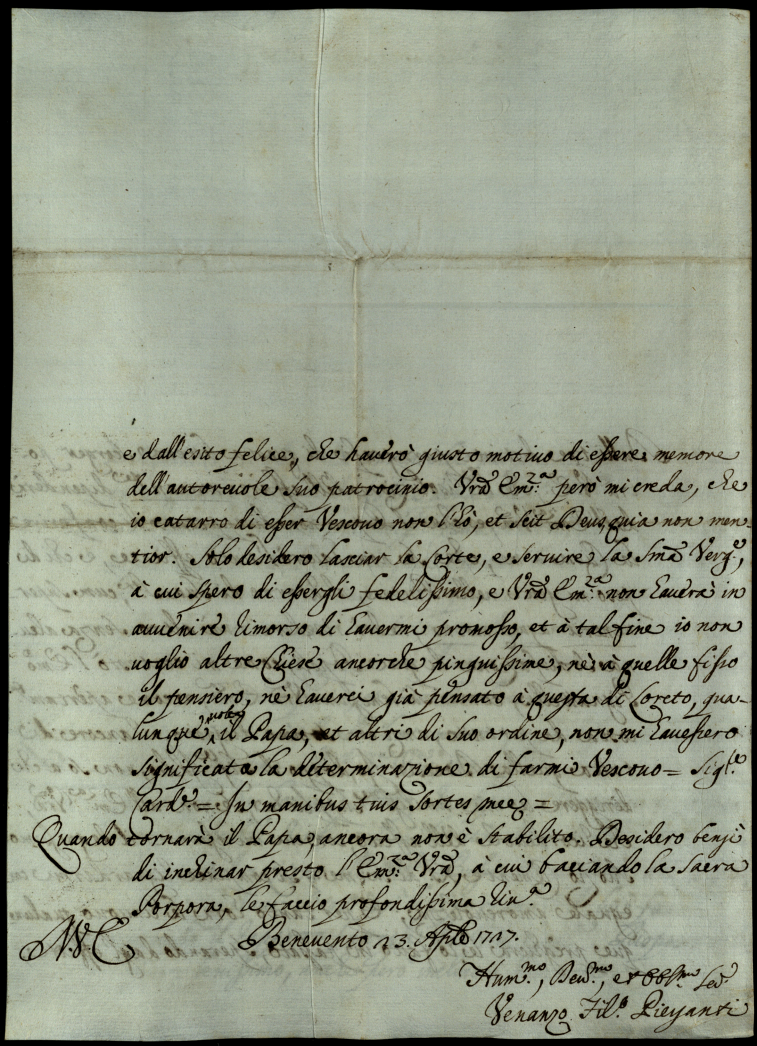 e dall'esito felice, che haverò giusto motivo di essere memore
dell'autorevole suo patrocinio. Vrā Em.za però mi creda, che
io catarro di esser Vescovo non l'hò, et scit Deus quia non men-
tior. Solo desidero lasciar la Corte, e servire la Smā Verg.e,
à cui spero di essergli fedelissimo, e Vrā Em.za non haverà in
avvenire rimorso di havermi promosso, et à tal fine io non
voglio altre Chiese ancorche pinguissime, nè à quelle fisso
il pensiero, nè haverei già pensato à questa di Loreto, qua-
lunque volta il Papa, et altri di suo ordine, non mi havessero
significata la determinazione di farmi Vescovo = Sig.re
Card.e = In manibus tuis sortes meę =
Quando tornarà il Papa, ancora non è stabilito. Desidero bensì
di inchinar presto l'Em.za Vrā, à cui baciando la Sacra
Porpora, le faccio profondissima riv.a
Benevento 23. Aple 1727.
Hum.mo, Dev.mo, et Obb.mo Ser.
Venanzo Fil.o Pieysanti